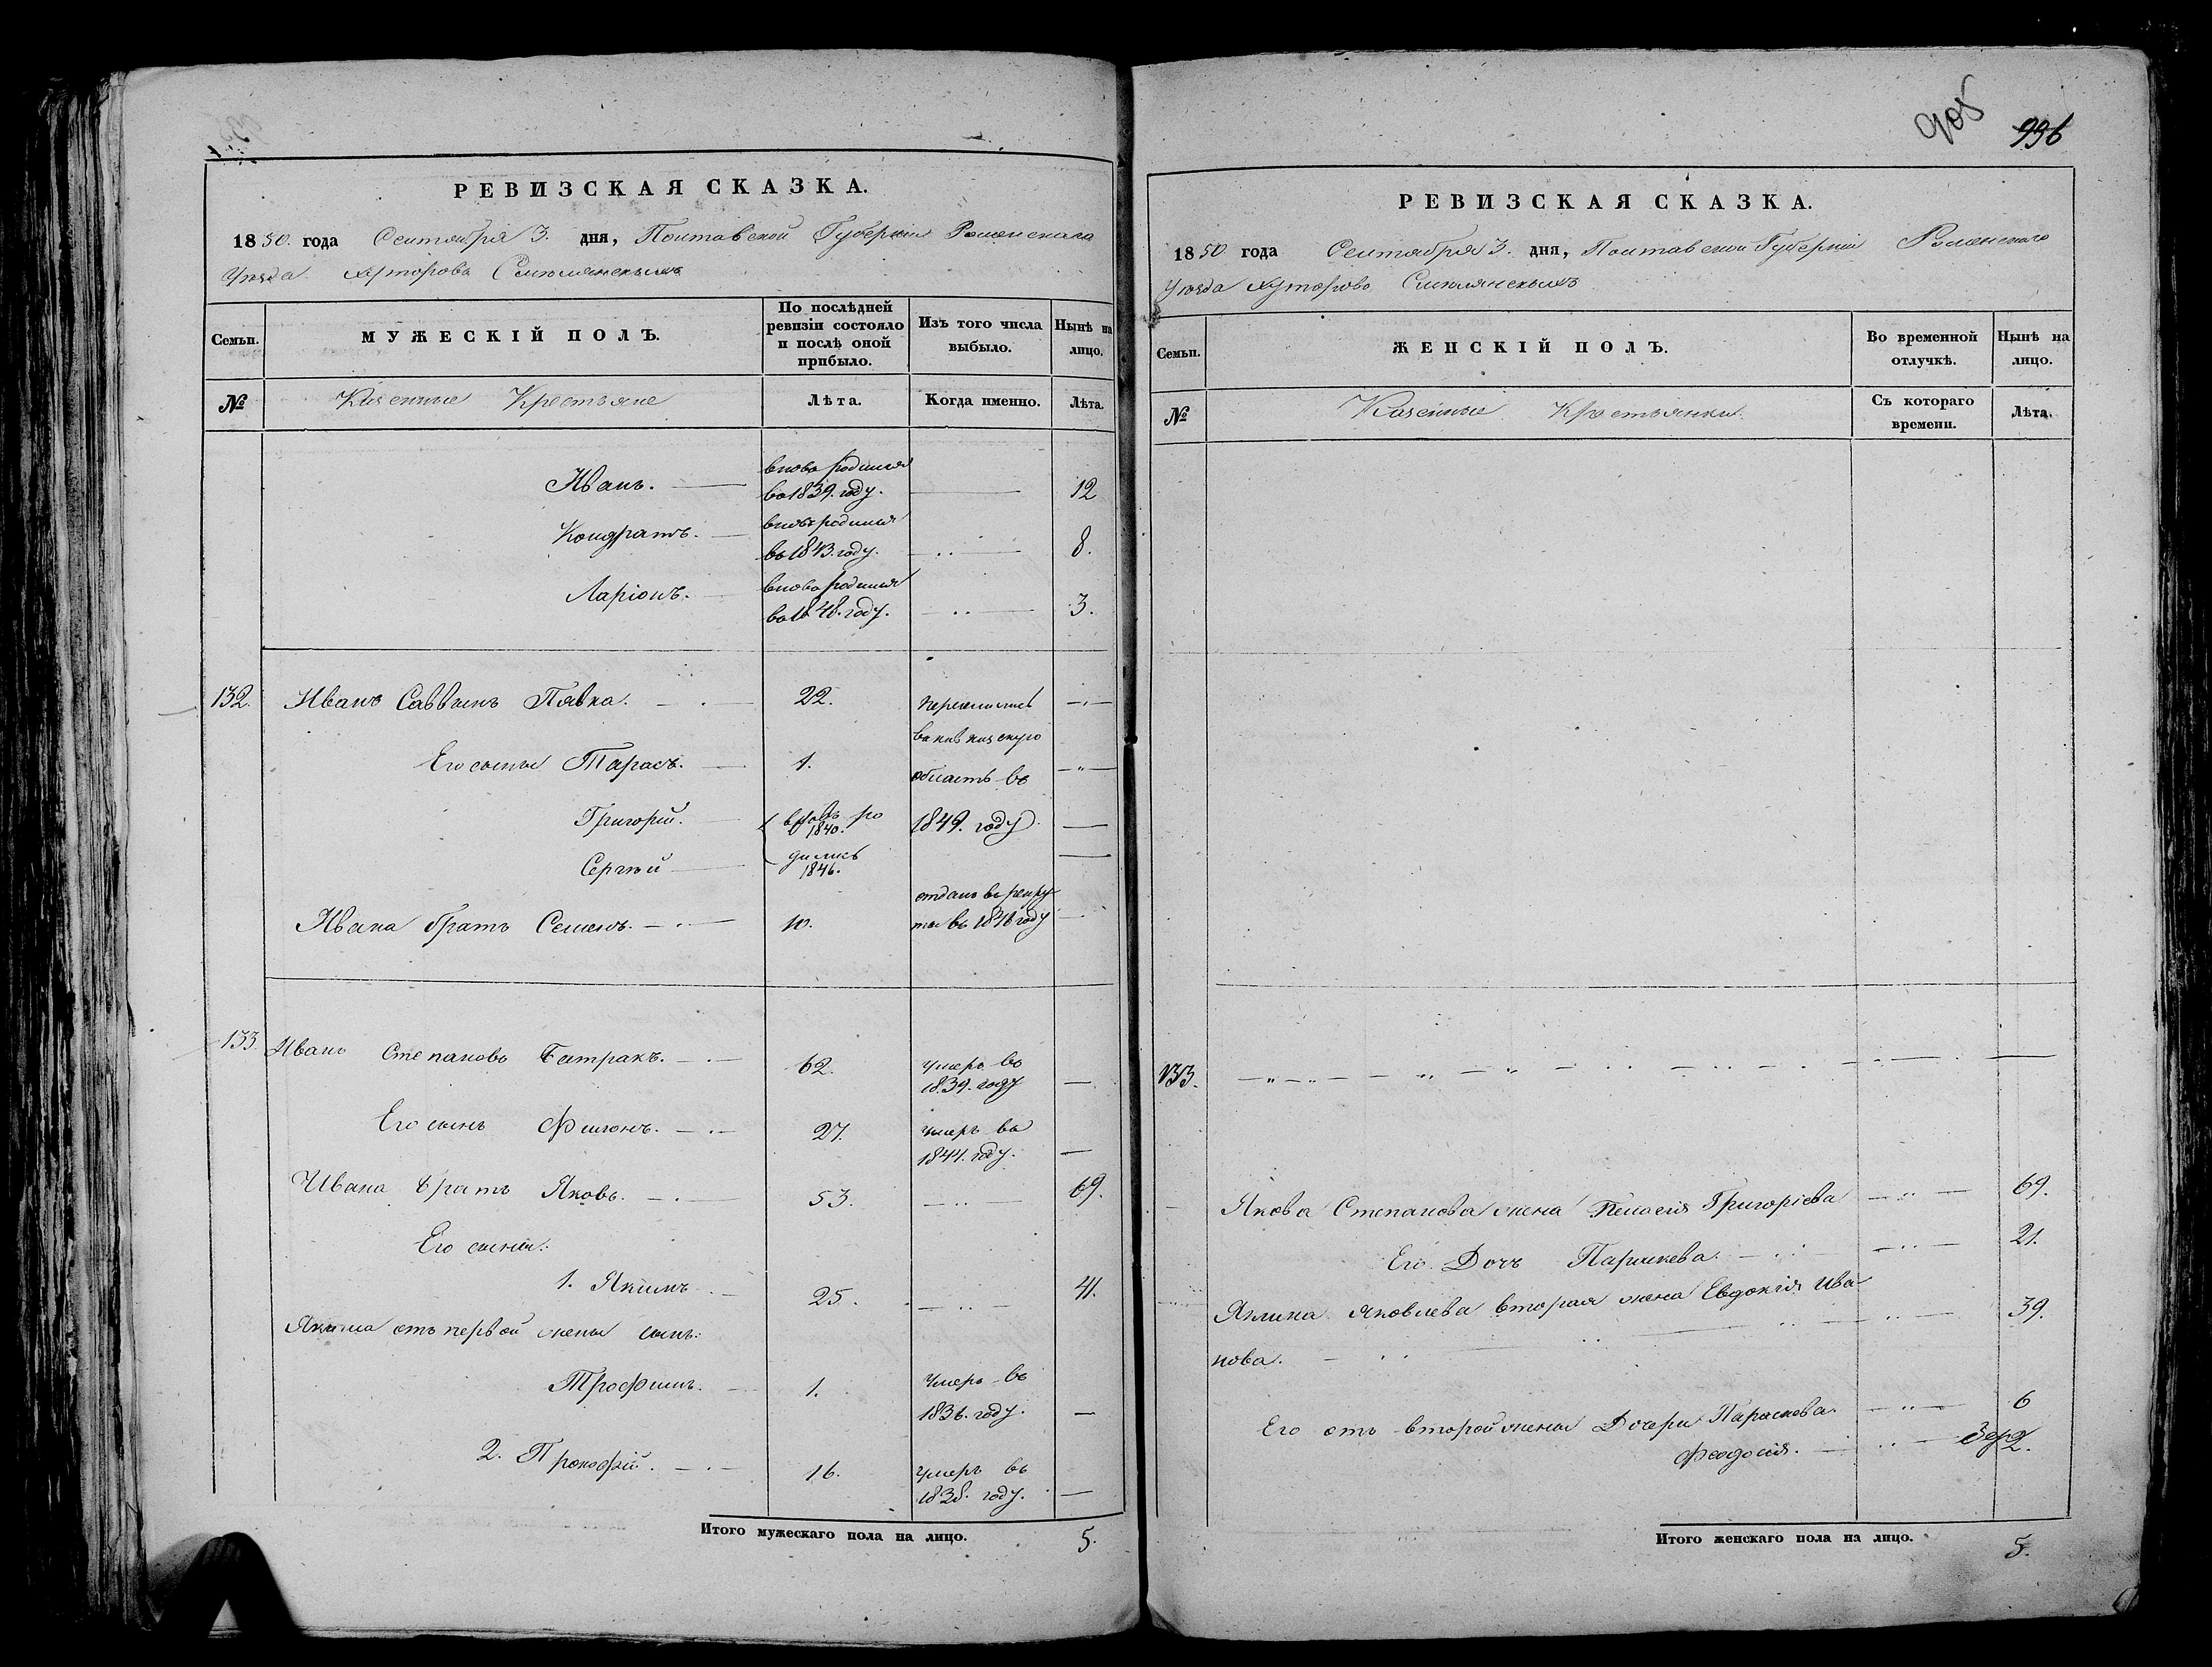 РЕВИЗСКАЯ СКАЗКА.
1850. года Сентября 3. дня, Полтавской Губерніи Роменскаго
Уѣзда хуторовъ Смѣлянскихъ
Семьи.
МУЖЕСКІЙ ПОЛЪ.
По послѣдней
ревизіи состояло
и послѣ оной
прибыло.
Изъ того числа
выбыло.
Нынѣ на
лицо.
№
Казенные Крестьяне
Лѣта.
Когда именно.
Лѣта.
Иванъ. вновь родился
въ 1839. году. 12
Кондратъ. вновь родился
въ 1843. году. 8.
Ларіонъ. вновь родился
въ 1848. году. 3.
132. Иванъ Саввинъ Пявка. 22. переселились
въ кавказскую
Его сыны Тарасъ. 1. область въ
Григорій. вновь ро 1849. году
1840.
Сергѣй дились
1846.
отданъ в рекру
Ивана братъ Семенъ. 10. ты въ 1848 году
133. Иванъ Степановъ Батракъ. 62. умеръ въ
1839. году
Его сынъ Филонъ. 27. умеръ въ
1844. году.
Ивана братъ Яковъ. 53. 69.
Его сыны:
1. Якимъ 25. 41.
Якима отъ первой жены сынъ:
Трофимъ. 1. Умеръ въ
1836. году.
2. Прокофій. 16. умеръ въ
1838. году.
Итого мужескаго пола на лицо. 5.
905
996
РЕВИЗСКАЯ СКАЗКА.
1850 года Сентября 3. дня, Полтавской Губерніи Роменскаго
Уѣзда хуторовъ Смѣлянскихъ
Семьи.
ЖЕНСКІЙ ПОЛЪ.
Во временной
отлучкѣ.
Нынѣ на
лицо.
№
Казенные Крестьянки.
Съ котораго
времени.
Лѣта.
133.
Якова Степанова жена Пелагея Григоріева 69.
Его Дочь Параскева. 21.
Якима Яковлева вторая жена Евдокія Ива-
нова. 39.
Его отъ второй жены Дочери Параскева. 6
Феодосія. 2.
Итого женскаго пола на лицо. 5.